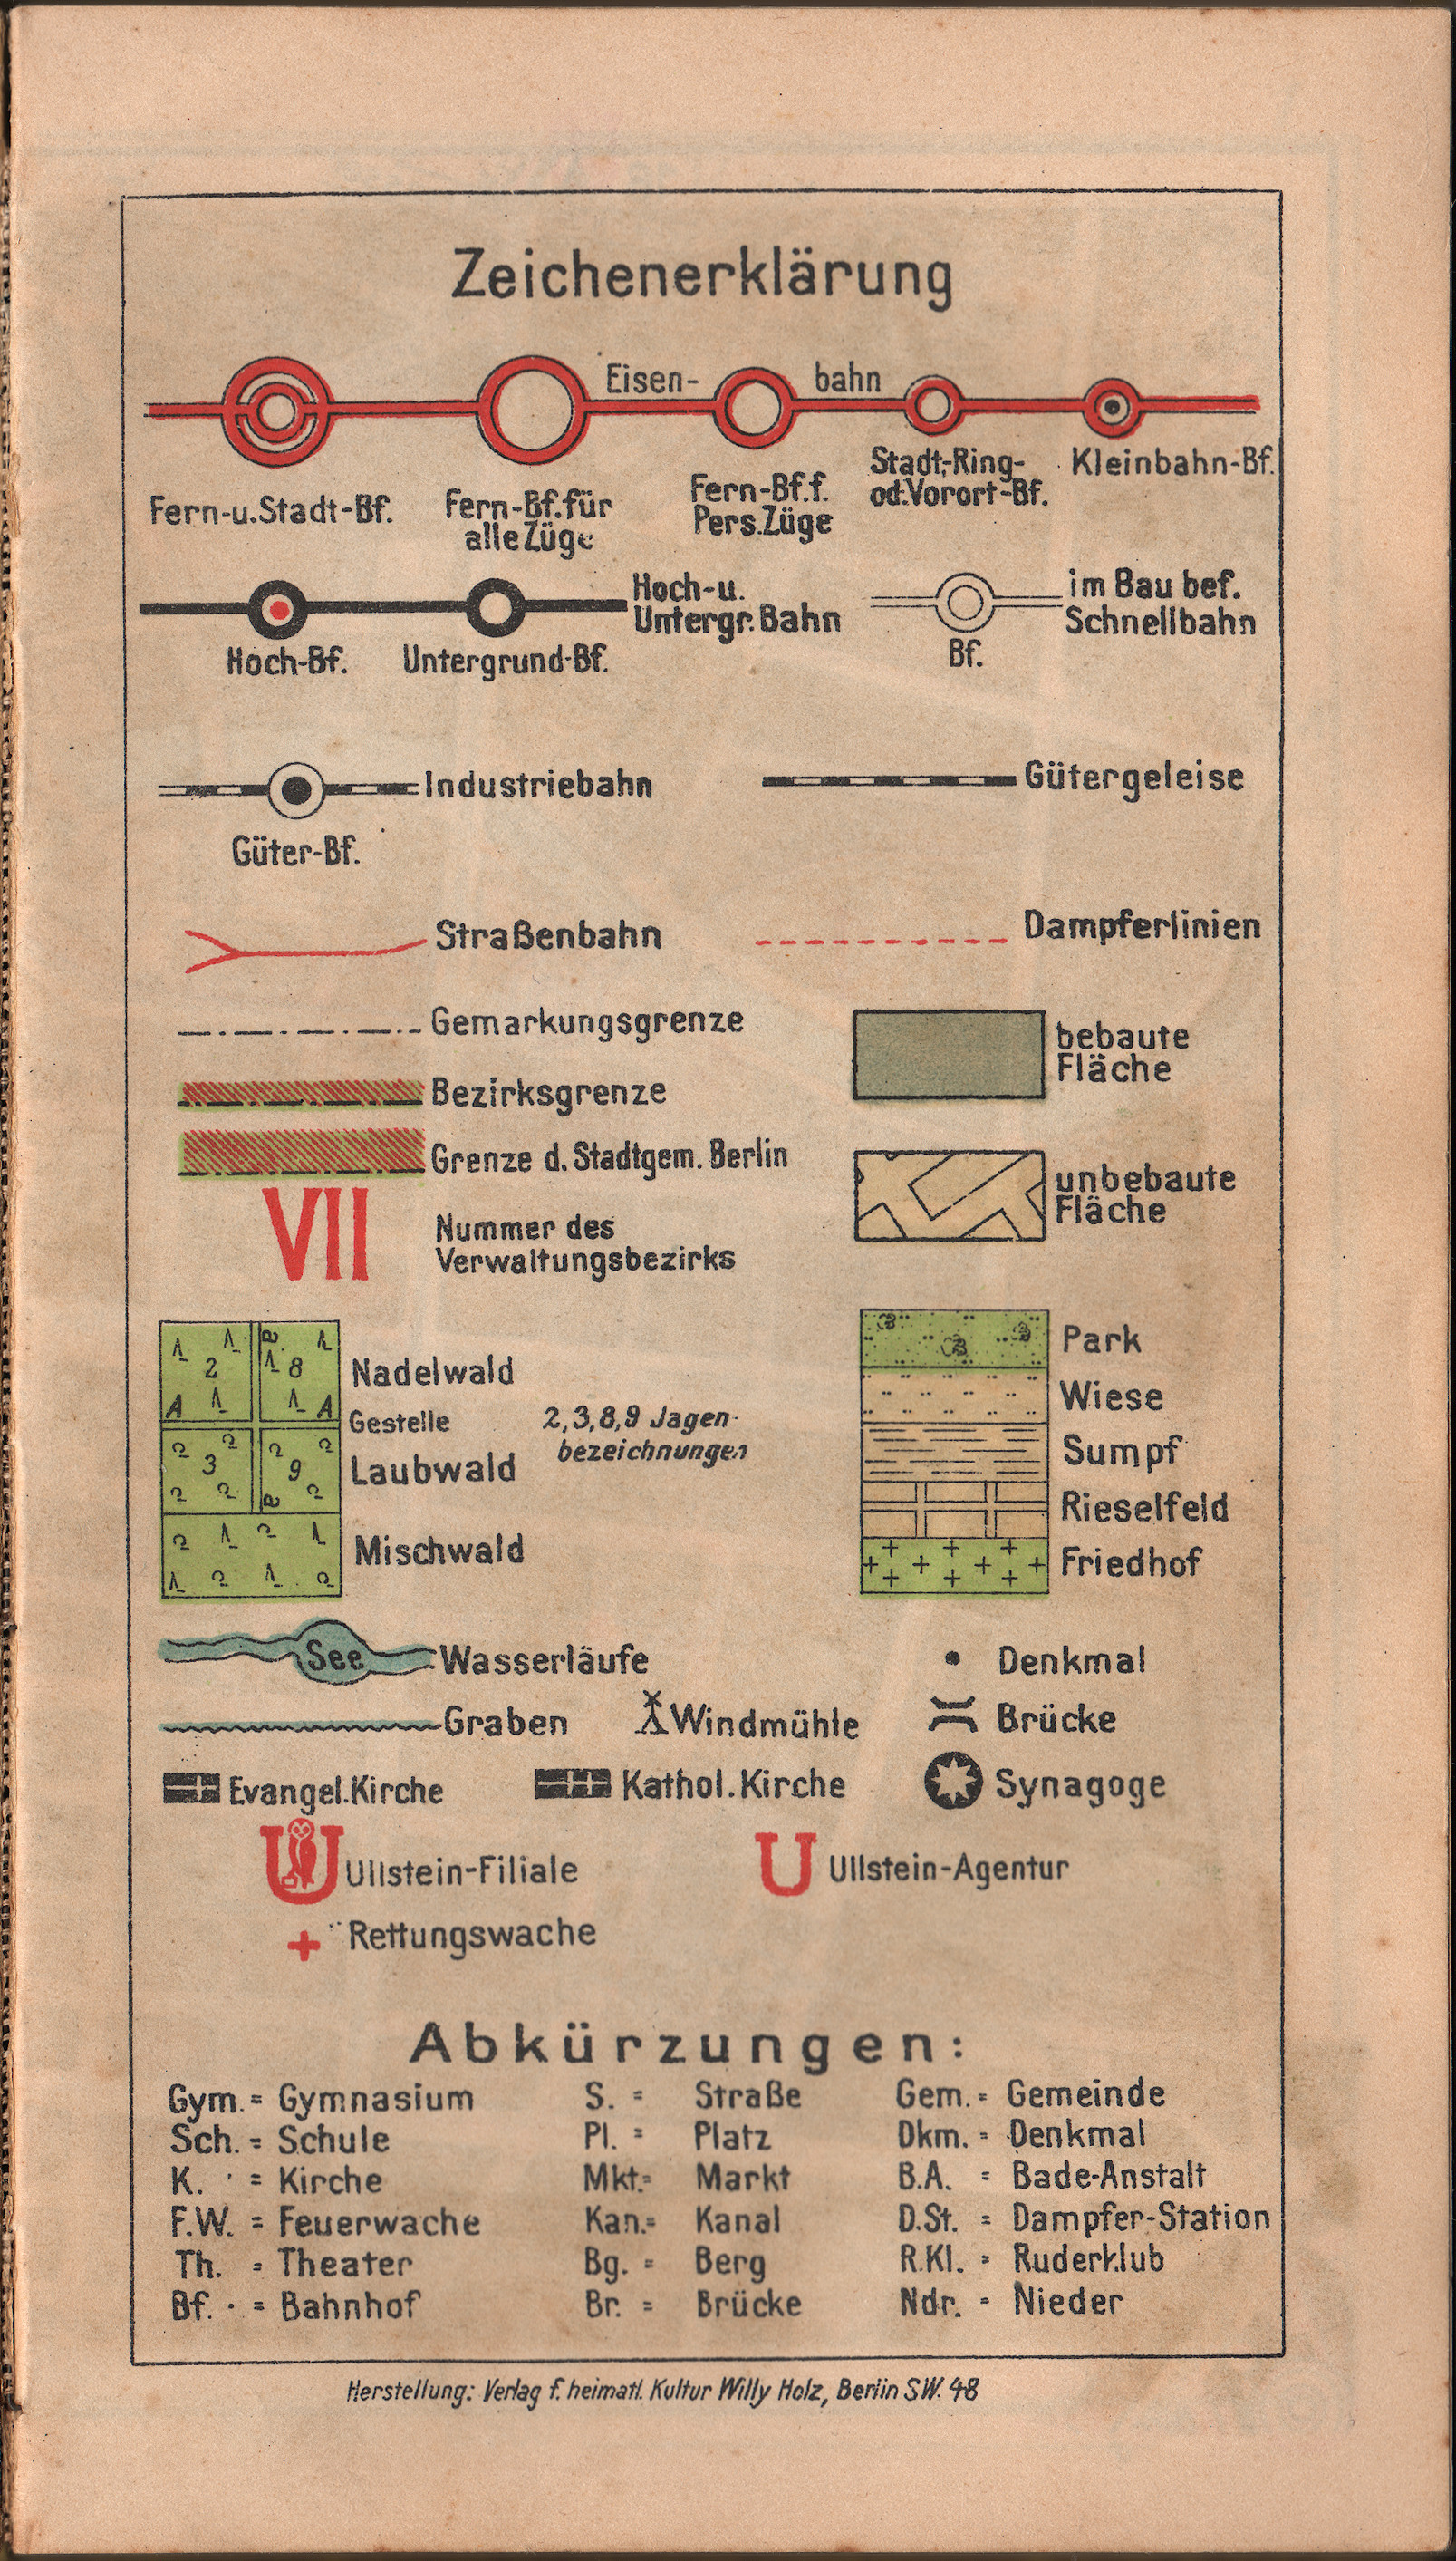 Zeichenerklärung
Eisen- bahn
Fern-u.Stadt-Bf.
Fern-Bf.für
alle Züge
Fern-Bf.f.
Pers.Züge
Stadt-,Ring-
od.Vorort-Bf.
Kleinbahn-Bf.
Hoch-Bf.
Untergrund-Bf.
Hoch-u.
Untergr.Bahn
Bf.
im Bau bef.
Schnellbahn
Industriebahn
Güter-Bf.
Gütergeleise
Straßenbahn
Dampferlinien
Gemarkungsgrenze
Bezirksgrenze
Grenze d. Stadtgem. Berlin
VII
Nummer des
Verwaltungsbezirks
bebaute
Fläche
unbebaute
Fläche
2 8
Nadelwald
Gestelle
3 9
Laubwald
Mischwald
2,3,8,9 Jagen-
bezeichnungen
Park
Wiese
Sumpf
Rieselfeld
Friedhof
See
Wasserläufe
Denkmal
Graben
Windmühle
Brücke
Evangel.Kirche
Kathol.Kirche
Synagoge
U Ullstein-Filiale
U Ullstein-Agentur
Rettungswache
Abkürzungen:
Gym. = Gymnasium
Sch. = Schule
K. = Kirche
F.W. = Feuerwache
Th. = Theater
Bf. = Bahnhof
S. = Straße
Pl. = Platz
Mkt. = Markt
Kan. = Kanal
Bg. = Berg
Br. = Brücke
Gem. = Gemeinde
Dkm. = Denkmal
B.A. = Bade-Anstalt
D.St. = Dampfer-Station
R.Kl. = Ruderklub
Ndr. = Nieder
Herstellung: Verlag f. heimatl. Kultur Willy Holz, Berlin SW. 48